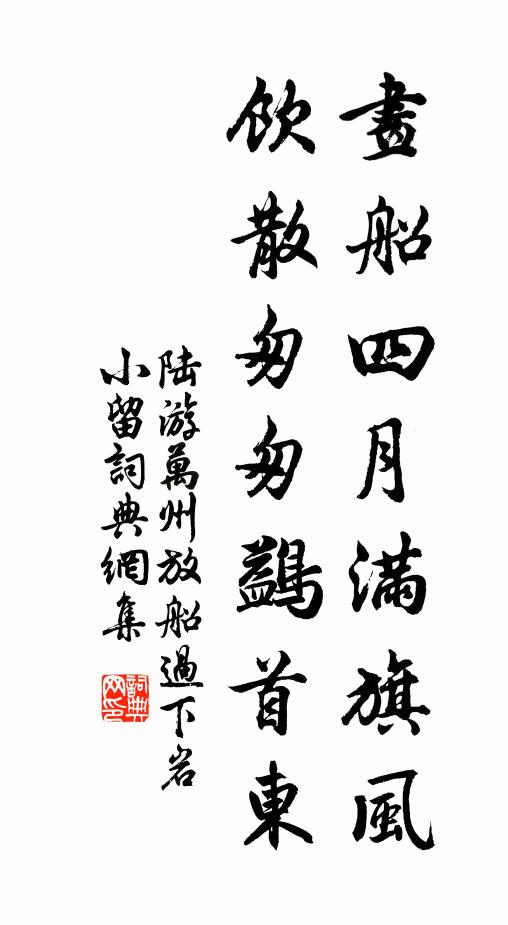 畫船四月滿旗風
飲散匆匆鷁首東
陆游萬州放船過下岩
小留詞典網集
詞典网印